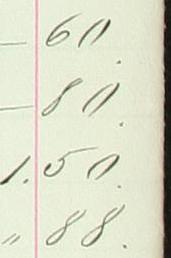 — 60.
— 80.
1.50.
" 88.